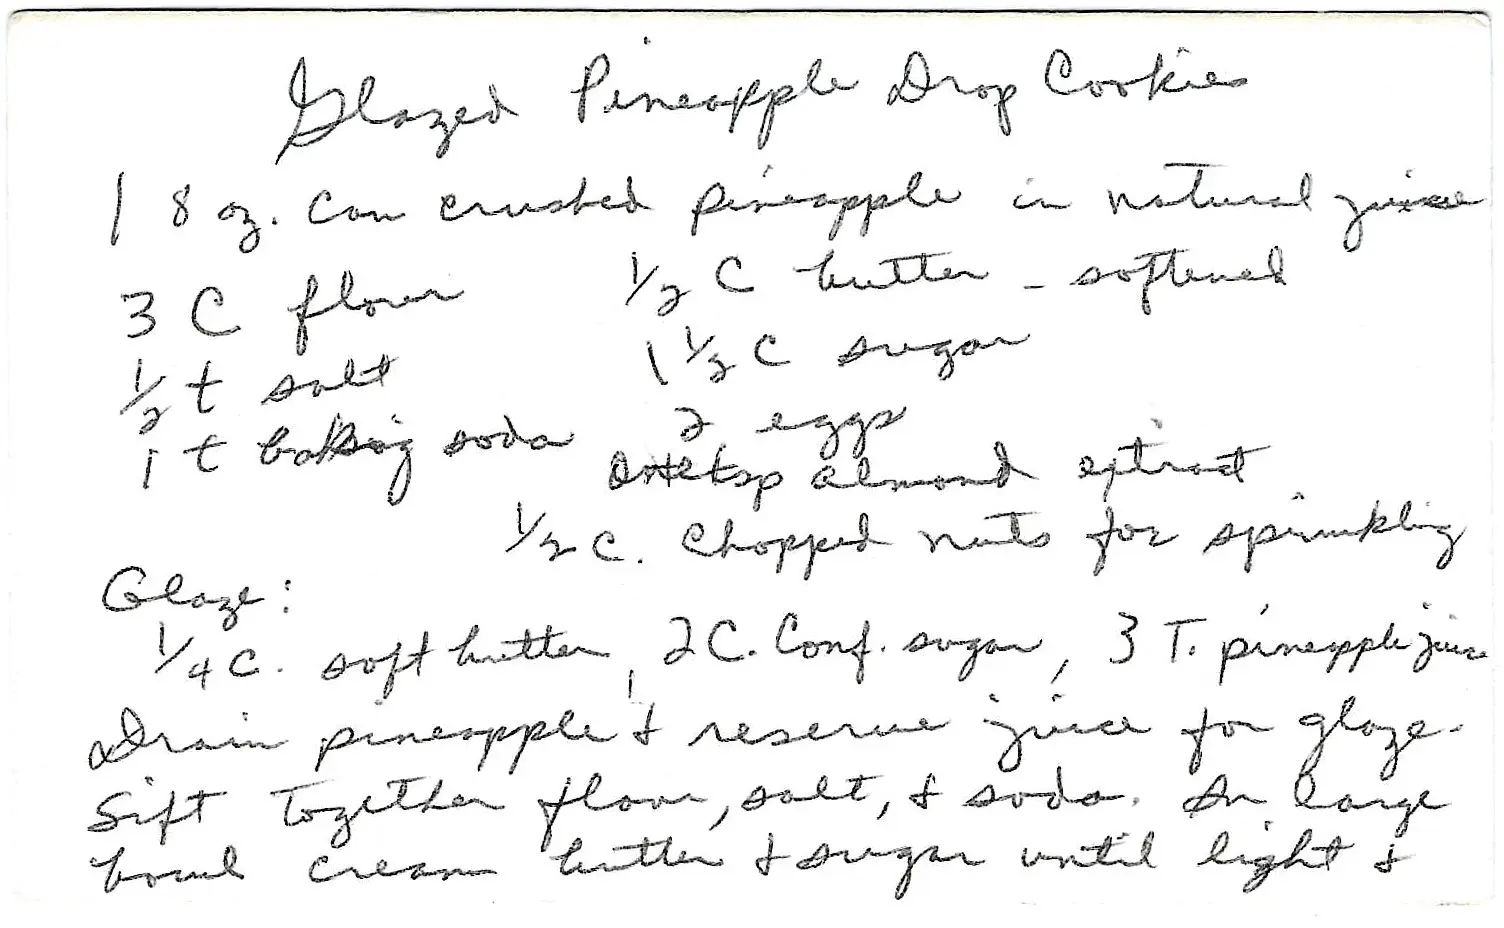 Glazed Pineapple Drop Cookies
1 8 oz. can crushed pineapple in natural juice
3 C flour 1/2 C butter - softened
1/2 t salt 1 1/2 C sugar
1 t baking soda 2 eggs
tsp almond extract
1/2 C. chopped nuts for sprinkling
Glaze:
1/4 C. soft butter, 2 C. Conf. sugar, 3 T. pineapple juice
Drain pineapple & reserve juice for glaze.
Sift together flour, salt, & soda. In large
bowl cream butter & sugar until light &